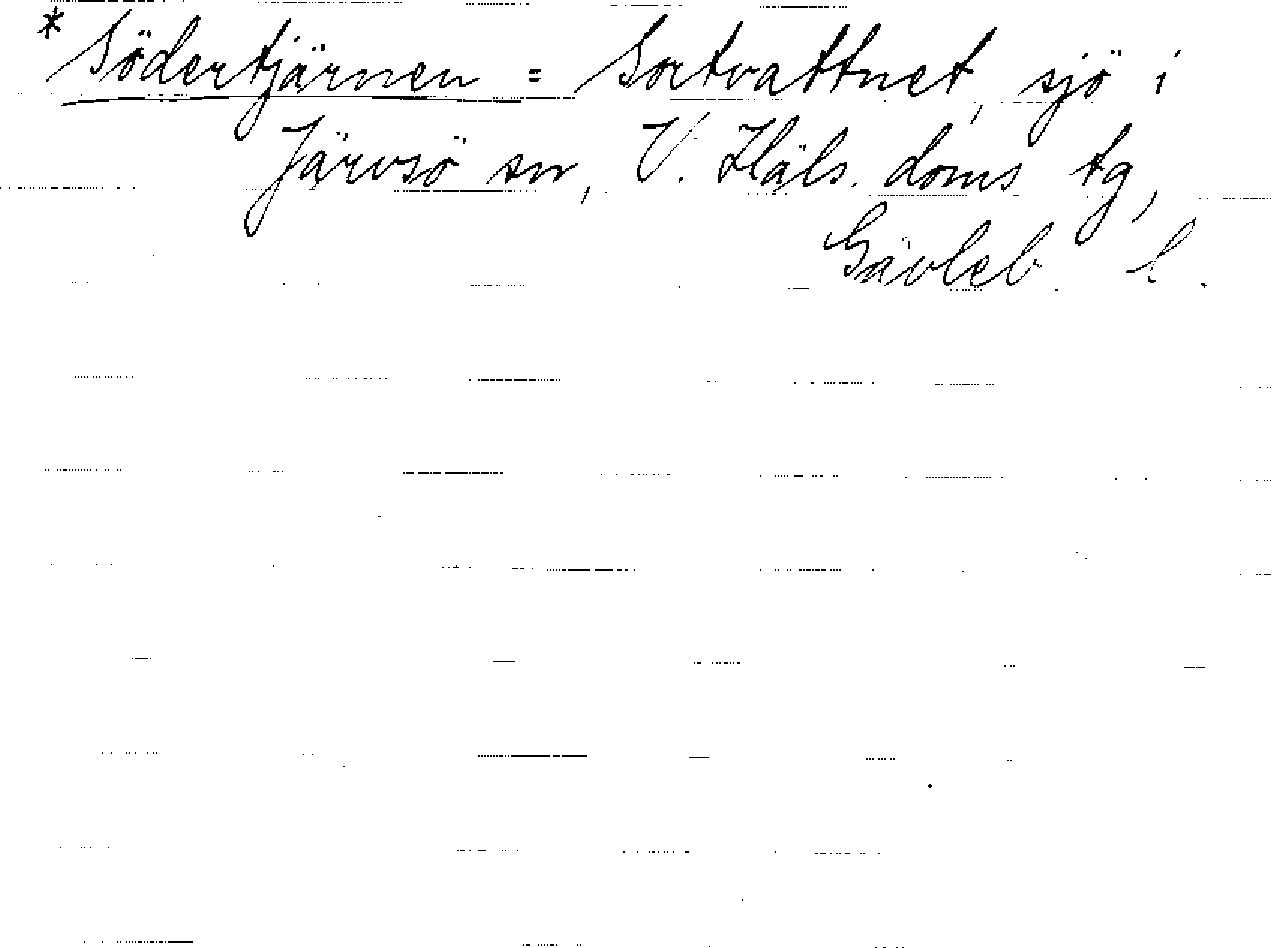 * Södertjärnen = Sortvattnet, sjö i
Järvsö sn, V. Häls. doms tg,
Gävleb. l.